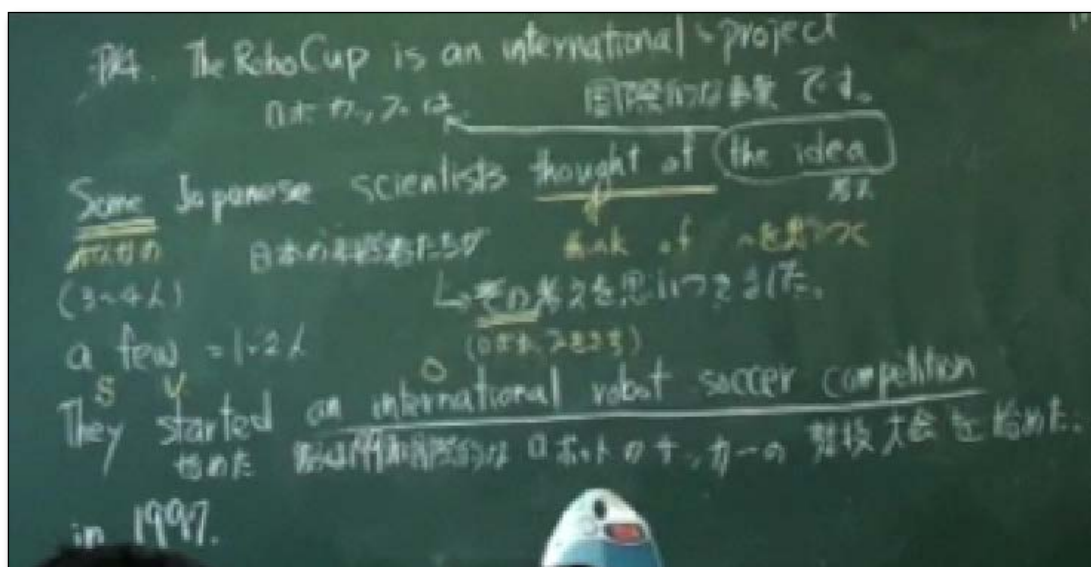 P14. The RoboCup is an international project
ロボカップは 国際的な事業です。
Some Japanese scientists thought of the idea
考え
日本の科学者たちが think of ~を思いつく
(3~4人) その考えを思いつきました。
a few = 1~2人
S V O
They started an international robot soccer competition
始めた ロボットのサッカーの競技大会を始めた。
in 1997.